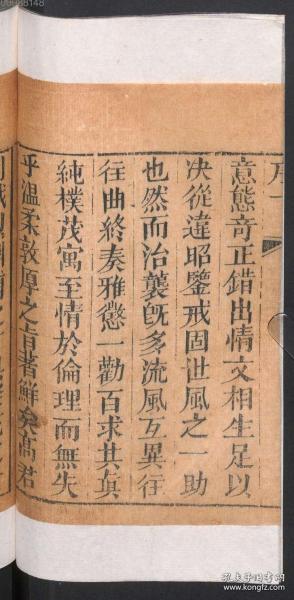 意態奇正錯出情文相生足以
決從違昭鑒戒固世風之一助
也然而治襲旣多流風互異徃
徃曲終奏雅懲一勸百求其眞
純樸茂寓至情於倫理而無失
乎溫柔敦厚之旨者鮮矣髙君
孔夫子旧书网